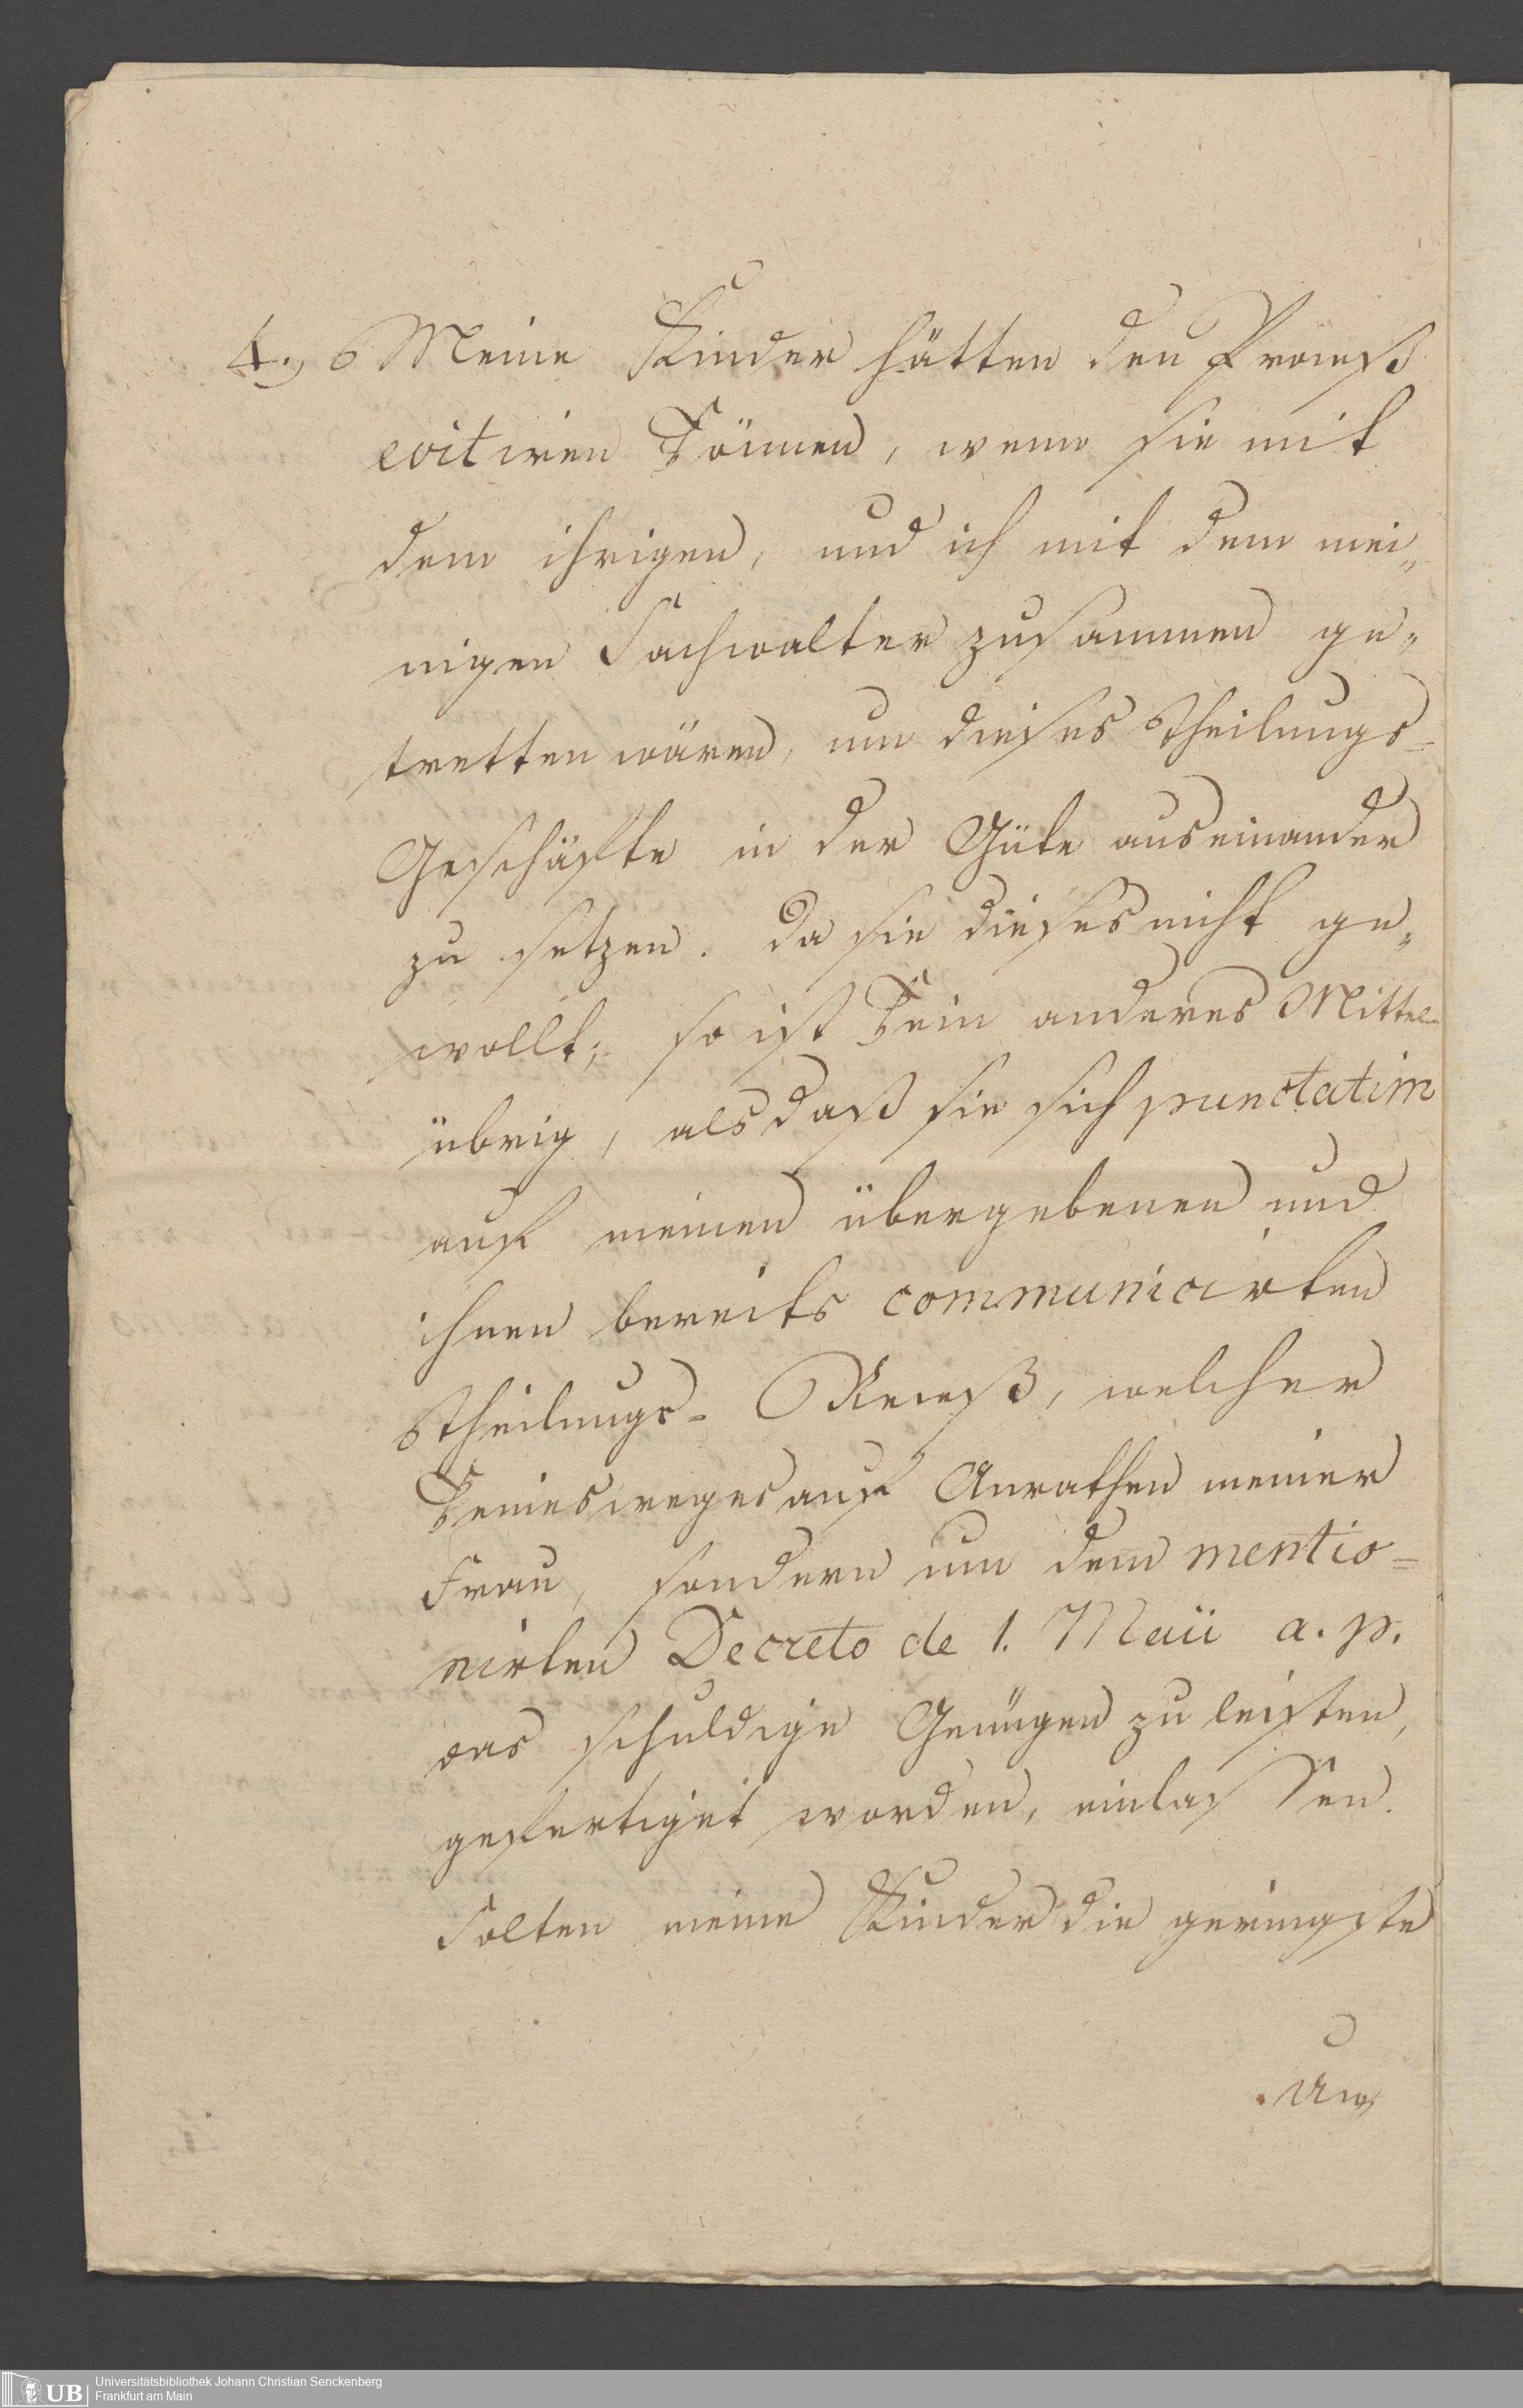 4.) Meine Kinder hätten den Proceß
evitiren können, wenn sie mit
dem ihrigen, und ich mit dem mei„
nigen Sachwalter zusammen ge„
tretten wären, um dieses Theilungs-
Geschäfte in der Güte auseinander
zu setzen. Da sie dieses nicht ge„
wollt; so ist kein anderes Mittel
übrig, als daß sie sich punctatim
auf meinen übergebenen und
ihnen bereits communicirten
Theilungs- Receß, welcher
keinesweges auf Anrathen meiner
Frau, sondern um dem mentio=
nirten Decreto de 1. Maii a. p.
das schuldige Genügen zu leisten,
gefertiget worden, einlassen.
Solten meine Kinder die geringste
Un„
UB
Universitätsbibliothek Johann Christian Senckenberg
Frankfurt am Main